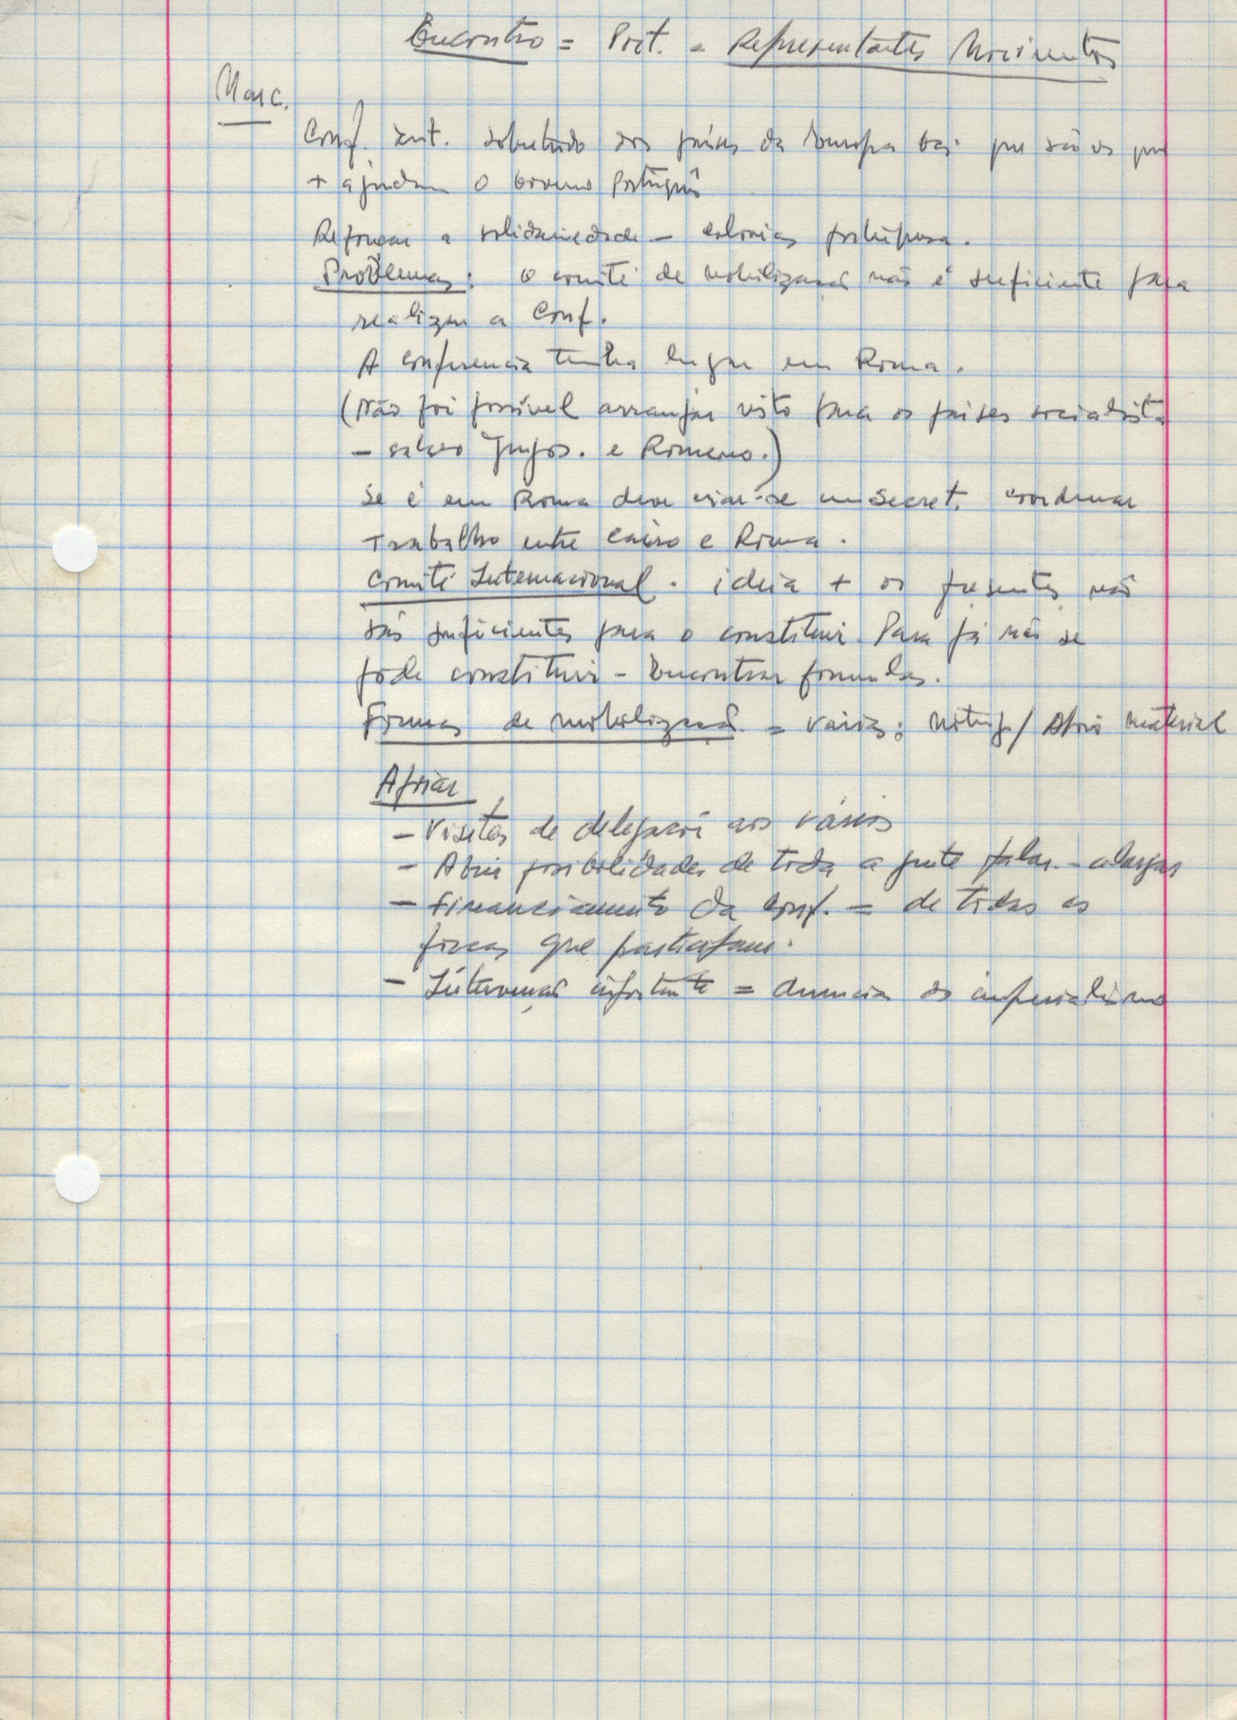 Encontro = Port. = Representantes Movimentos
Marc.
Conf. int. sobretudo dos países da Europa que são os que
+ ajudam o Governo Português
Reforçar a solidariedade - colonias portuguesa.
Problemas: o comité de mobilização não é suficiente para
realizar a Conf.
A conferencia tenha lugar em Roma.
(Não foi possível arranjar visto para os países socialista
- salvo Jugos. e Romeno.)
Se é em Roma deve criar-se um secret. coordenar
trabalho entre Cairo e Roma.
Comité Internacional. ideia + os presentes não
são suficientes para o constituir. Para já não se
pode constituir - Encontrar formulas.
Formas de mobilização = várias: / Apoio material
- Visitas de delegação aos vários
- Abrir possibilidades de toda a gente falar - alargar
- Financiamento da Conf. = de todas as
forças que participam.
- Intervenção importante = denuncia do imperialismo